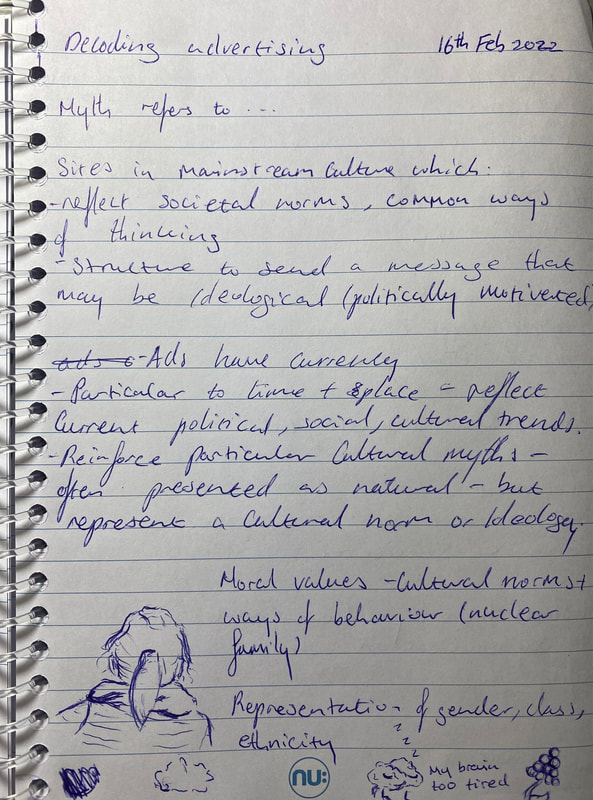 Decoding advertising 16th Feb 2022
Myth refers to ...
Sites in mainstream culture which:
- reflect societal norms, common ways
of thinking
- Structure to send a message that
may be Ideological (politically motivated)
ads - Ads have currency
- Particular to time + place - reflect
current political, social, cultural trends.
- Reinforce particular cultural myths -
often presented as natural - but
represent a cultural norm or Ideology.
Moral values - cultural norms +
ways of behaviour (nuclear
family)
Representation of gender, class,
ethnicity
z
z
z
nu:
My brain
too tired